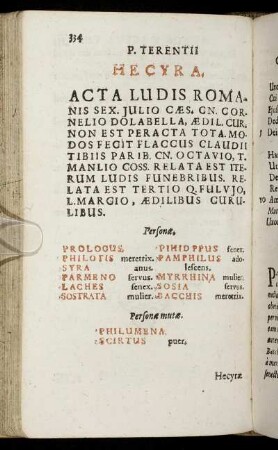 334
P. TERENTII
HECYRA,
ACTA LUDIS ROMA-
NIS SEX. JULIO CÆS. GN. COR-
NELIO DOLABELLA, ÆDIL. CUR.
NON EST PERACTA TOTA. MO-
DOS FECIT FLACCUS CLAUDII
TIBIIS PARIB. CN. OCTAVIO, T.
MANLIO COSS. RELATA EST ITE-
RUM LUDIS FUNEBRIBUS. RE-
LATA EST TERTIO Q. FULVJO,
L. MARGIO, ÆDILIBUS CURU-
LIBUS.
Personæ,
PROLOGUS, PHIDIPPUS senex.
PHILOTIS meretrix. PAMPHILUS ado-
SYRA anus. lescens.
PARMENO servus. MYRRHINA mulier.
LACHES senex. SOSIA servus.
SOSTRATA mulier. BACCHIS meretrix.
Personæ mutæ.
PHILUMENA.
SCIRTUS puer.
Hecyræ